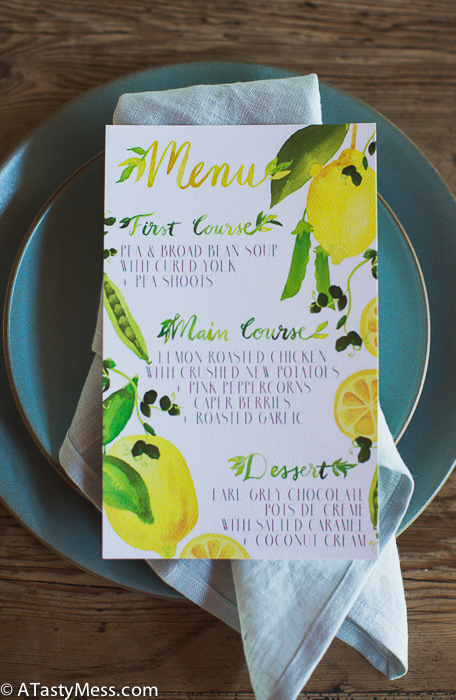 Menu
First Course
PEA & BROAD BEAN SOUP
WITH CURED YOLK
+ PEA SHOOTS
Main Course
LEMON ROASTED CHICKEN
WITH CRUSHED NEW POTATOES
+ PINK PEPPERCORNS
CAPER BERRIES
+ ROASTED GARLIC
Dessert
EARL GREY CHOCOLATE
POTS DE CREME
WITH SALTED CARAMEL
+ COCONUT CREAM
© ATastyMess.com